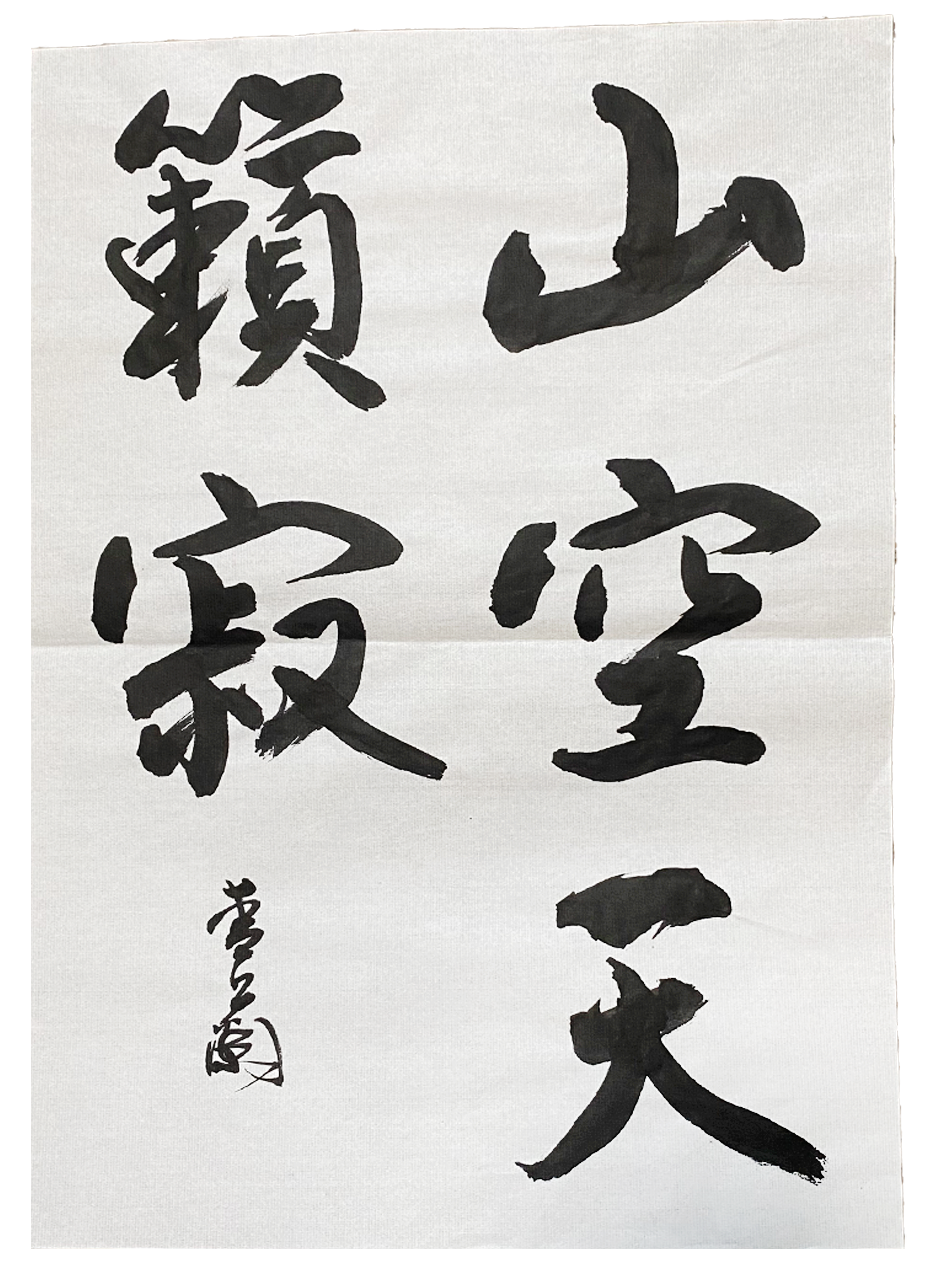 山空天
籟寂